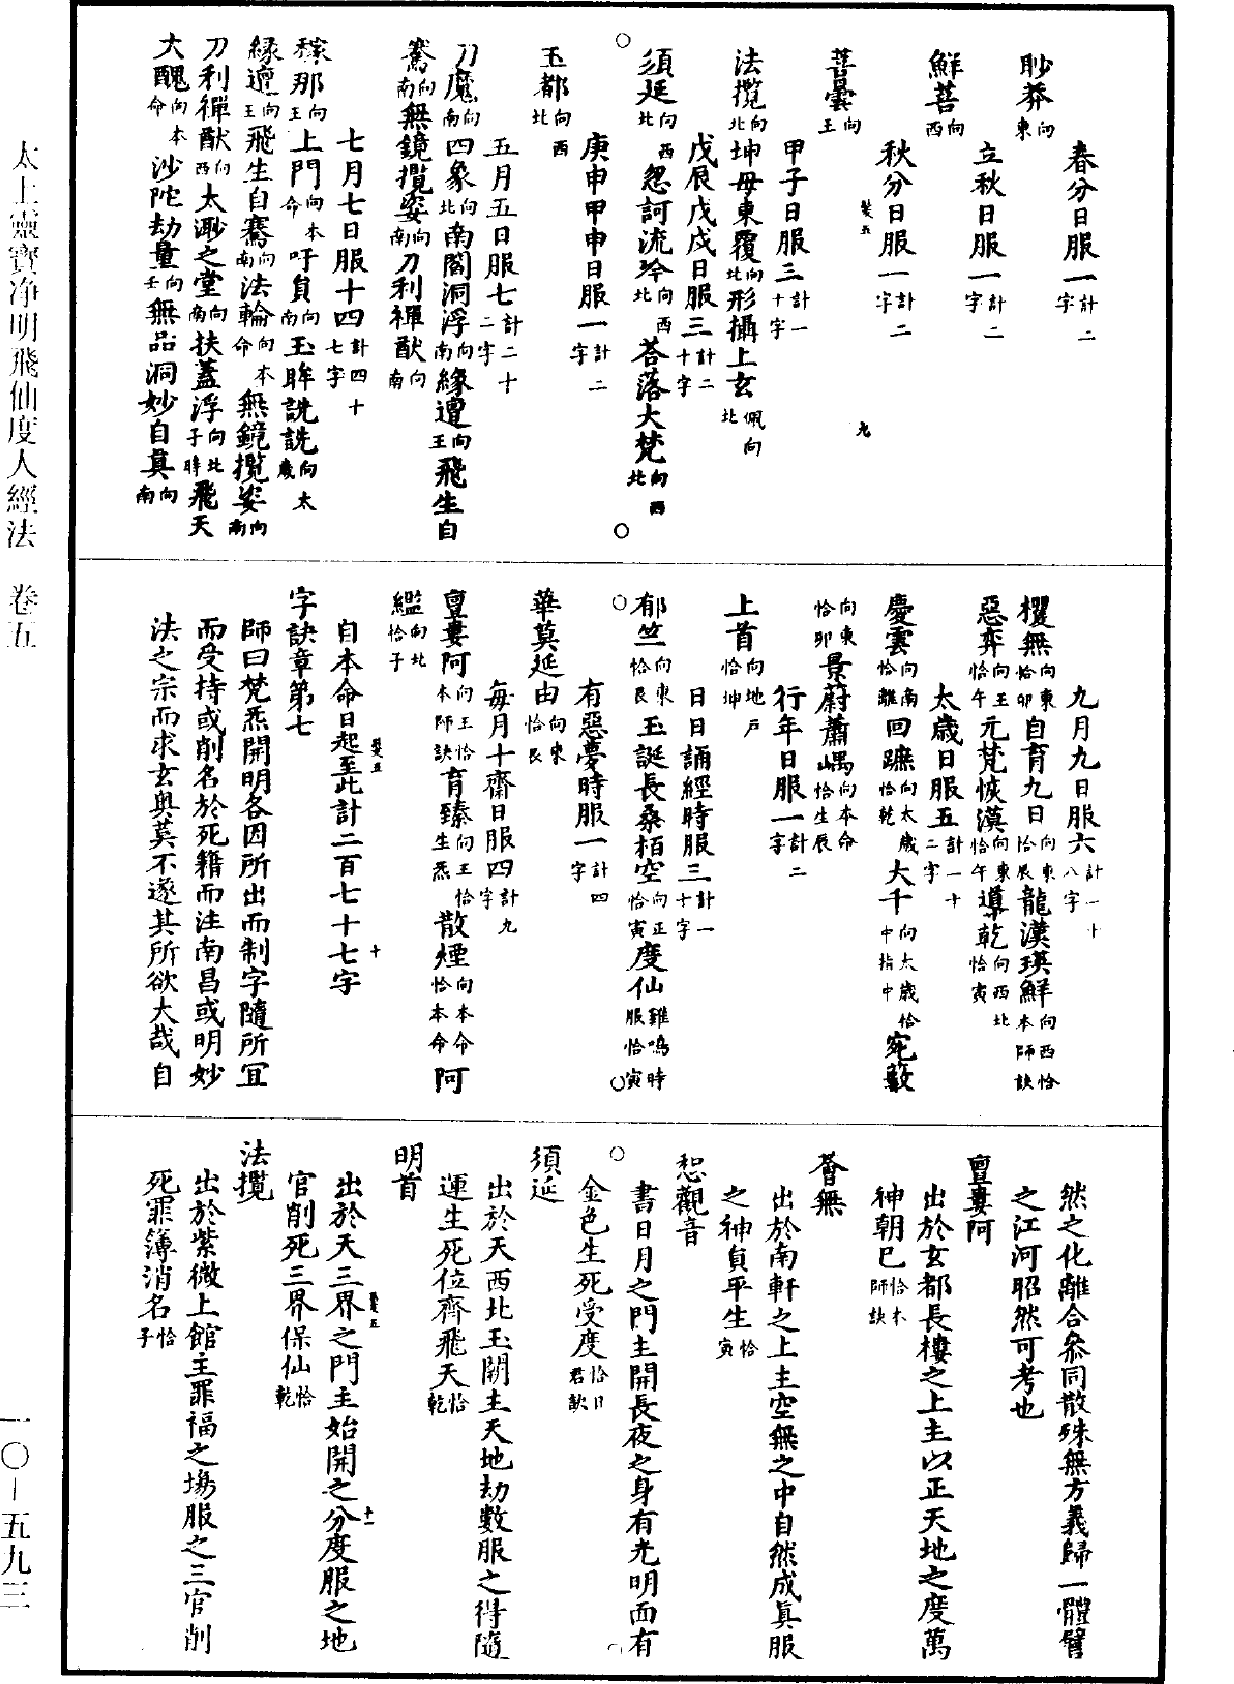 春分日服一計二字
眇莽向東
立秋日服一計二字
鮮菩向西
秋分日服一計二字
菩曇向王
甲子日服三計一十字
法攬向北坤母東覆向北形攝上玄佩向北
戊辰戊戌日服三計二十字
須延向西北忽訶流吟向西北荅落大梵向西北
庚申甲申日服一計二字
玉都向西北
五月五日服七計二十二字
刀魔向南四象向北南閻洞浮向南緣邅向王飛生自
騫向南無鏡攬姿向南刀利禪猷向南
七月七日服十四計四十七字
稼那向王上門向本命吁員向南玉眸詵詵向太歲
緣邅向王飛生自騫向南法輪向本命無鏡攬姿向南
刀利禪猷向西太淵之堂向南扶蓋浮向北子時飛天
大醜向本命沙陀劫量向壬無品洞妙自真向南
九月九日服六計一十八字
櫻無向東恰卯自育九日向東恰辰龍漢瑛鮮向西恰本師訣
惡弈向王恰午元梵恢漠向東恰午導乾向西北恰寅
太歲日服五計一十二字
慶雲向南恰離回蹠向太歲恰乾大千向太歲恰中指中宛藪
向東恰卯景蔚蕭嵎向本命恰生辰
行年日服一計二字
上首向地戶恰坤
日日誦經時服三計一十字
郁竺向東恰艮玉誕長桑栢空向正恰寅度仙雞鳴時服恰寅
有惡夢時服一計四字
華莫延由向東恰艮
每月十齋日服四計九字
亶婁阿向王恰本師訣育臻向王恰生炁散煙向本命恰本命阿
緼向北恰子
自本命日起至此計二百七十七字
字訣章第七
師曰梵炁開明各因所出而制字隨所宜
而受持或削名於死籍而注南昌或明妙
法之宗而求玄奧莫不遂其所欲大哉自
然之化離合叅同散殊無方義歸一體譬
之江河昭然可考也
亶婁阿
出於玄都長樓之上主以正天地之度萬
神朝巳恰本師訣
菩無
出於南軒之上主空無之中自然成真服
之神貞平生恰寅
惒觀音
書日月之門主開長夜之身有光明面有
金色生死受度恰日君訣
須延
出於天西北玉闕主天地劫數服之得隨
運生死位齊飛天恰乾
明首
出於天三界之門主始開之分度服之地
官削死三界保仙恰乾
法攬
出於紫微上館主罪福之塲服之三官削
死罪簿消名恰子
太上靈寶净明飛仙度人經法 卷五
一〇—五九三